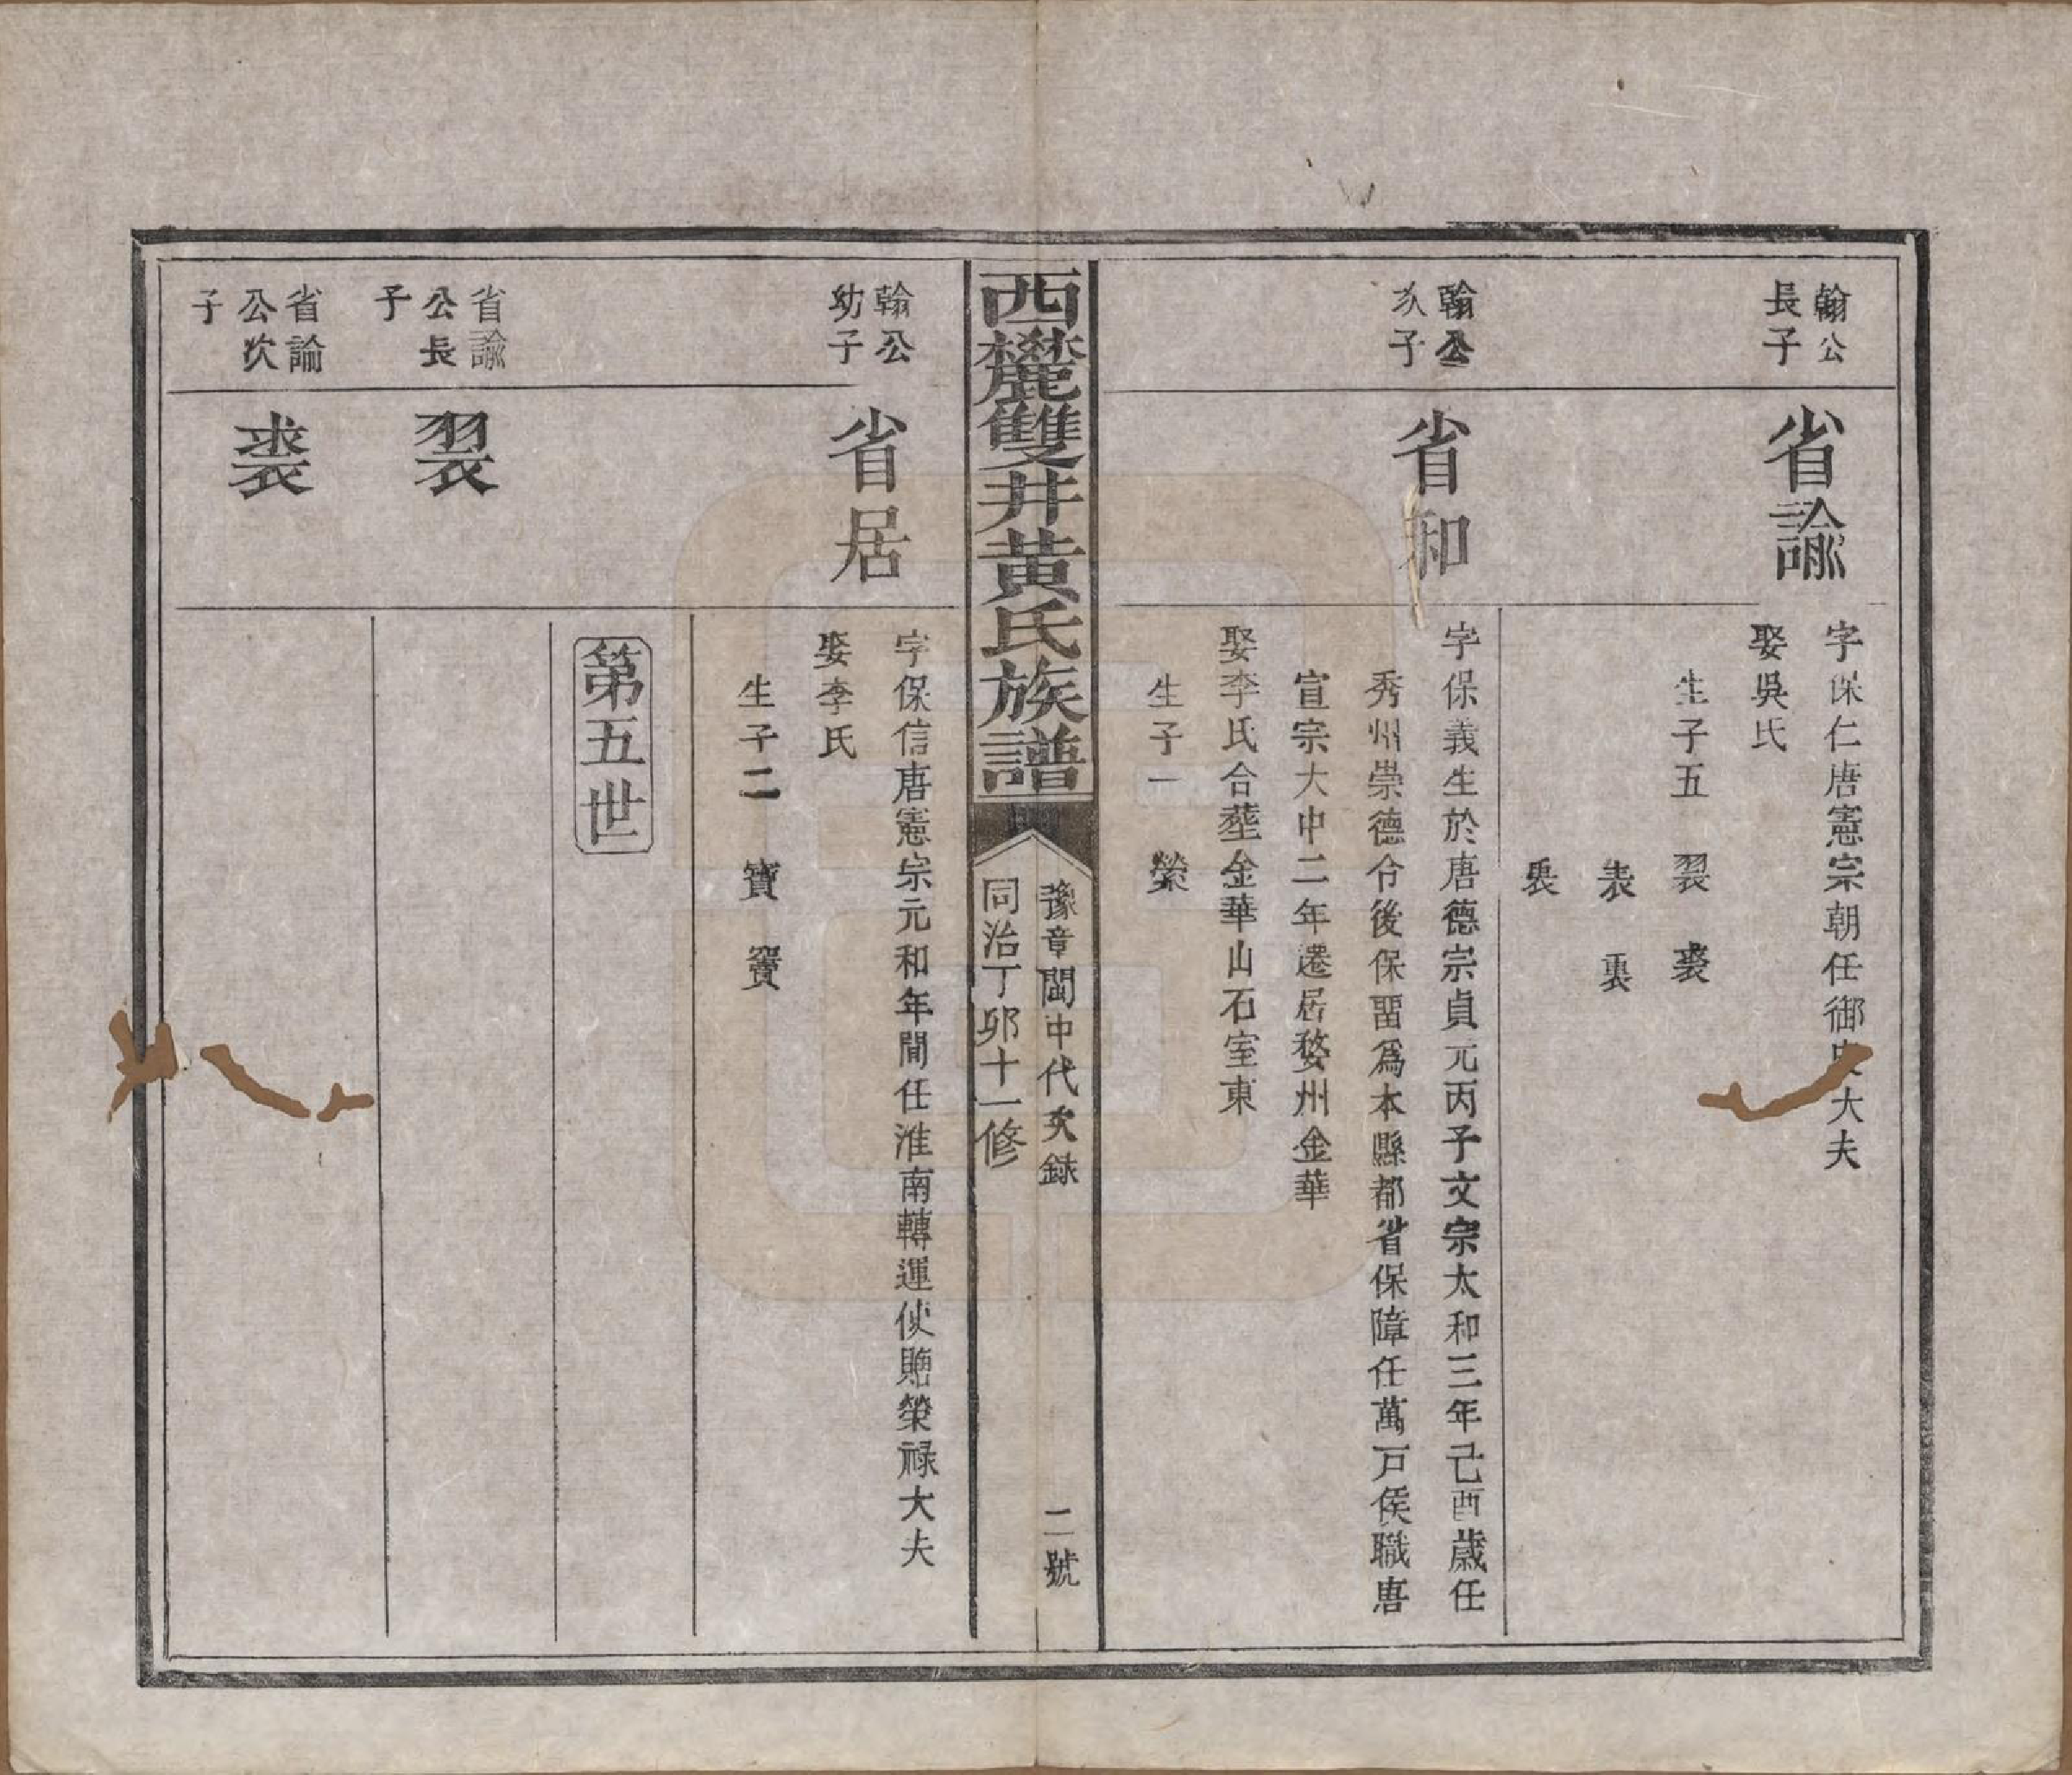 翰公
長子
省諭
字保仁唐憲宗朝任御史大夫
娶吳氏
生子五 裂 裘
表 裏
裊
翰公
次子
省和
字保義生於唐德宗貞元丙子文宗太和三年己酉歲任
秀州崇德令後保畱爲本縣都省保障任萬戸侯職唐
宣宗大中二年遷居婺州金華
娶李氏合塟金華山石室東
生子一 縈
西麓雙井黃氏族譜
豫章閩中代次錄
二號
同治丁卯十一修
翰公
幼子
省居
字保信唐憲宗元和年間任淮南轉運使贈榮祿大夫
娶李氏
生子二 寶 賨
第五世
省諭
公長
子
裂
省諭
公次
子
裘